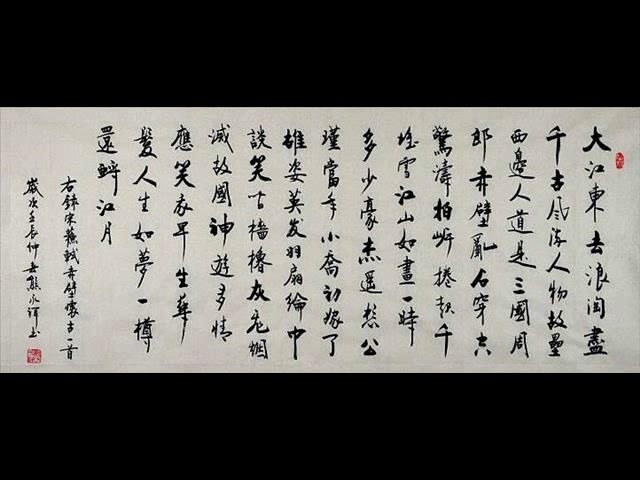 大江東去浪淘盡
千古風流人物故壘
西邊人道是三國周
郎赤壁亂石穿空
驚濤拍岸捲起千
堆雪江山如畫一時
多少豪杰遥想公
瑾當年小喬初嫁了
雄姿英发羽扇綸巾
談笑间檣櫓灰飛烟
滅故國神遊多情
應笑我早生華
髪人生如夢一樽
還酹江月
右錄宋蘇軾赤壁懷古一首
歲次壬辰仲春熊永祥书